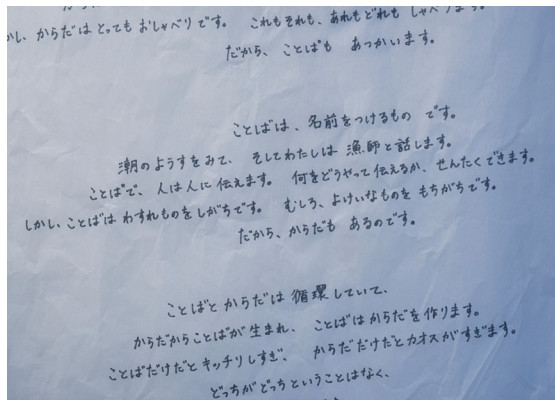 かし、からだは とっても おしゃべりです。 これもそれも、あれもどれも しゃべります。
だから、ことばも あつかいます。
ことばは、名前をつけるもの です。
潮のようすをみて、そしてわたしは 漁師と話します。
ことばで、人は人に 伝えます。 何をどうやって伝えるか、せんたくできます。
しかし、ことばは わすれものを しがちです。 むしろ、よけいなものを もちがちです。
だから、からだも あるのです。
ことばと からだは 循環していて、
からだからことばが 生まれ、 ことばはからだを作ります。
ことばだけだと キッチリしすぎ、 からだだけだとカオスがすぎます。
どっちがどっちということはなく、